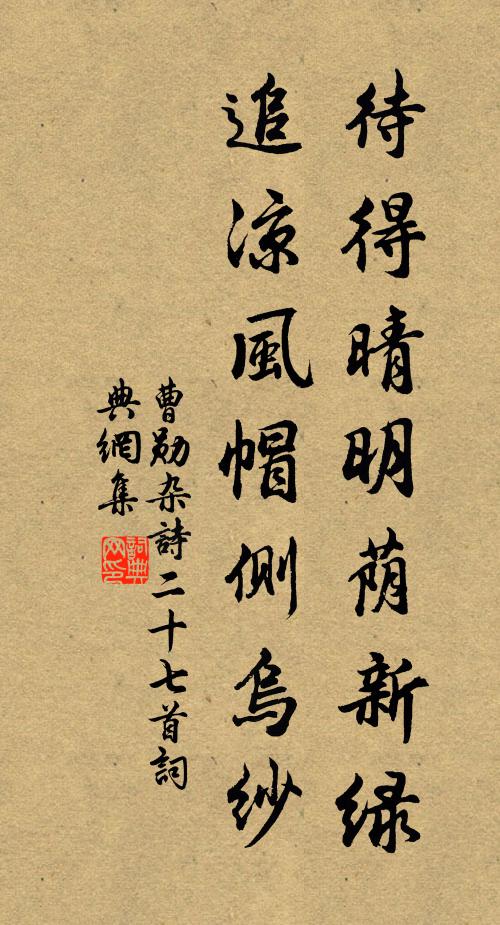 待得晴明荫新绿
追凉風帽侧烏紗
曹勛杂詩二十七首詞
典網集
詞典网印